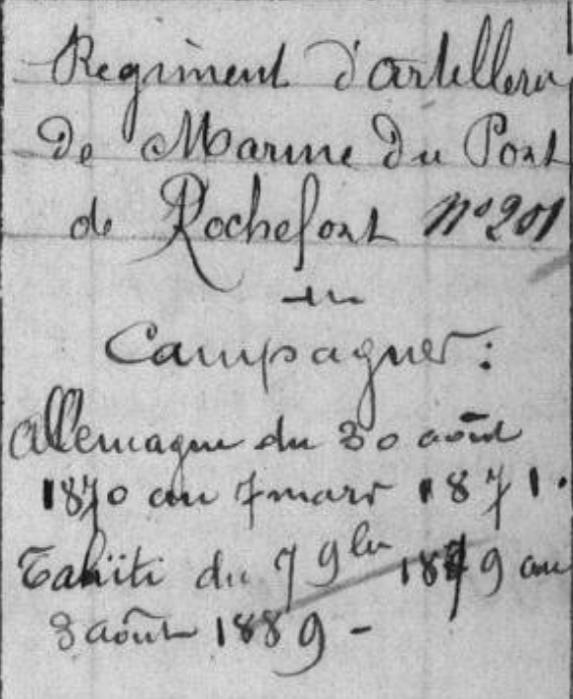 Regiment d'artillerie
de Marine du Port
de Rochefort n° 201
Campagnes :
Allemagne du 30 août
1870 au 7 mars 1871.
Tahïti du 7 9bre 1879 au
8 août 1889 -